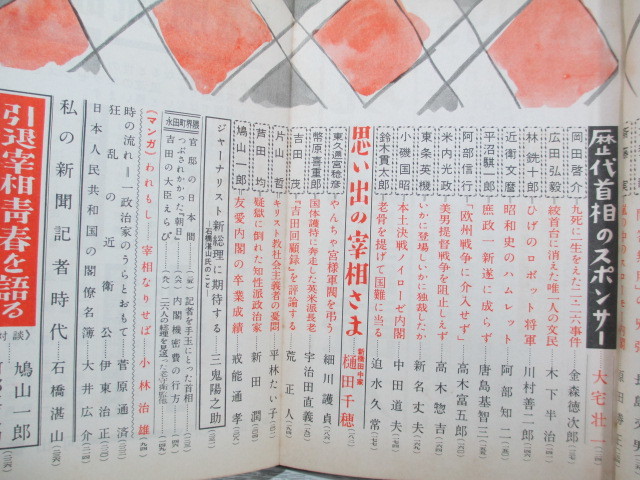 斎藤実
歴代首相のスポンサー 大宅壮一
岡田啓介 九死に生をえた二・二六事件 金森徳次郎
広田弘毅 絞首台に消えた唯一人の文民 木下半治
林銑十郎 ひげのロボット将軍 川村善二郎
近衛文麿 昭和史のハムレット 阿部知二
平沼騏一郎 庶政一新遂に成らず 唐島基智三
阿部信行 「欧州戦争に介入せず」 高木富五郎
米内光政 英男提督戦争を阻止しえず 高木惣吉
東条英機 いかに登場しいかに独裁したか 新名丈夫
小磯国昭 本土決戦ノイローゼ内閣 中田道夫
鈴木貫太郎 老骨を提げて国難に当る 迫水久常
思い出の宰相さま 新橋田中家 樋田千穂
東久邇宮稔彦 やんちゃ宮様軍閥を弔う 細川護貞
幣原喜重郎 国体護持に奔走した英米派長老 宇治田直義
吉田茂 『吉田回顧録』を評論する 荒正人
片山哲 キリスト教社会主義者の憂悶 平林たい子
芦田均 疑獄に倒れた知性派政治家 新田潤
鳩山一郎 友愛内閣の卒業成績 戒能通孝
ジャーナリスト新総理に期待する―石橋湛山氏のこと― 三鬼陽之助
永田町界隈
官邸の日本間
つぶされかかった朝日
吉田の大臣えらび
記者を手玉にとった首相
内閣機密費の行方
(マンガ) われもし 宰相なりせば 小林治雄
時の流れ―一政治家のうらとおもて 菅原通済
狂乱の近衛公 伊東治正
日本人民共和国の閣僚名簿 大井広介
私の新聞記者時代 石橋湛山
引退宰相青春を語る
対談 鳩山一郎